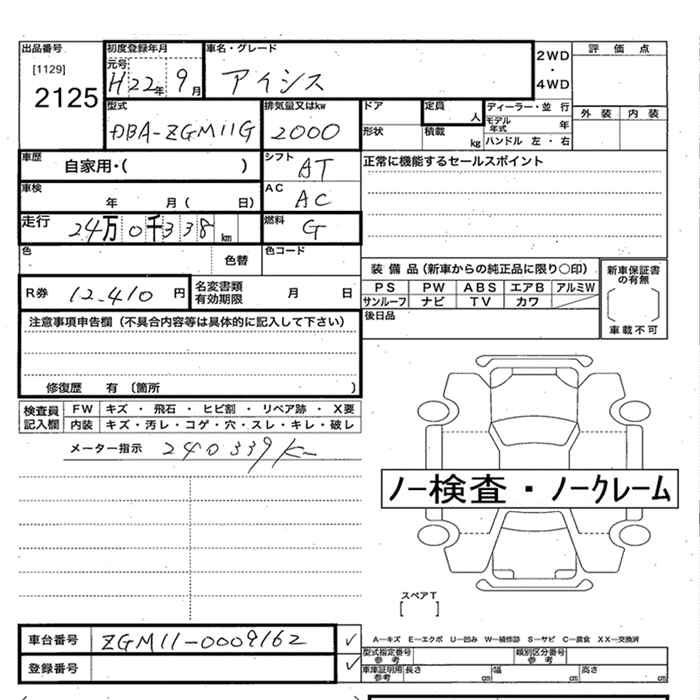 出品番号 初度登録年月 車名・グレード 2WD・4WD 評価点
[1129] 元号 H22年 9月 アイシス
2125
型式 排気量又はkw ドア 定員 人 ディーラー・並 行 外装 内装
DBA-ZGM11G 2000 形状 積載 kg モデル年式 年
ハンドル 左・右
車歴 自家用・( ) シフト AT 正常に機能するセールスポイント
車検 年 月( 日) AC AC
走行 24万0千338km 燃料 G
色 色替 色コード
装備品(新車からの純正品に限り○印) 新車保証書の有無
R券 12,410円 名変書類有効期限 月 日 PS PW ABS エアB アルミW
サンルーフ ナビ TV カワ
注意事項申告欄(不具合内容等は具体的に記入して下さい) 後日品 車載不可
修復歴 有(箇所 )
検査員記入欄 FW キズ・飛石・ヒビ割・リペア跡・X要
内装 キズ・汚レ・コゲ・穴・スレ・キレ・破レ
メーター指示 240339K
ノー検査・ノークレーム
スペアT
[ ]
車台番号 ZGM11-0009162 ✓ A―キズ E―エクボ U―凹み W―補修跡 S―サビ C―腐食 XX―交換済
型式指定番号 参考 類別区分番号 参考
登録番号 ✓ 車庫証明用 参考 長さ cm 幅 cm 高さ cm